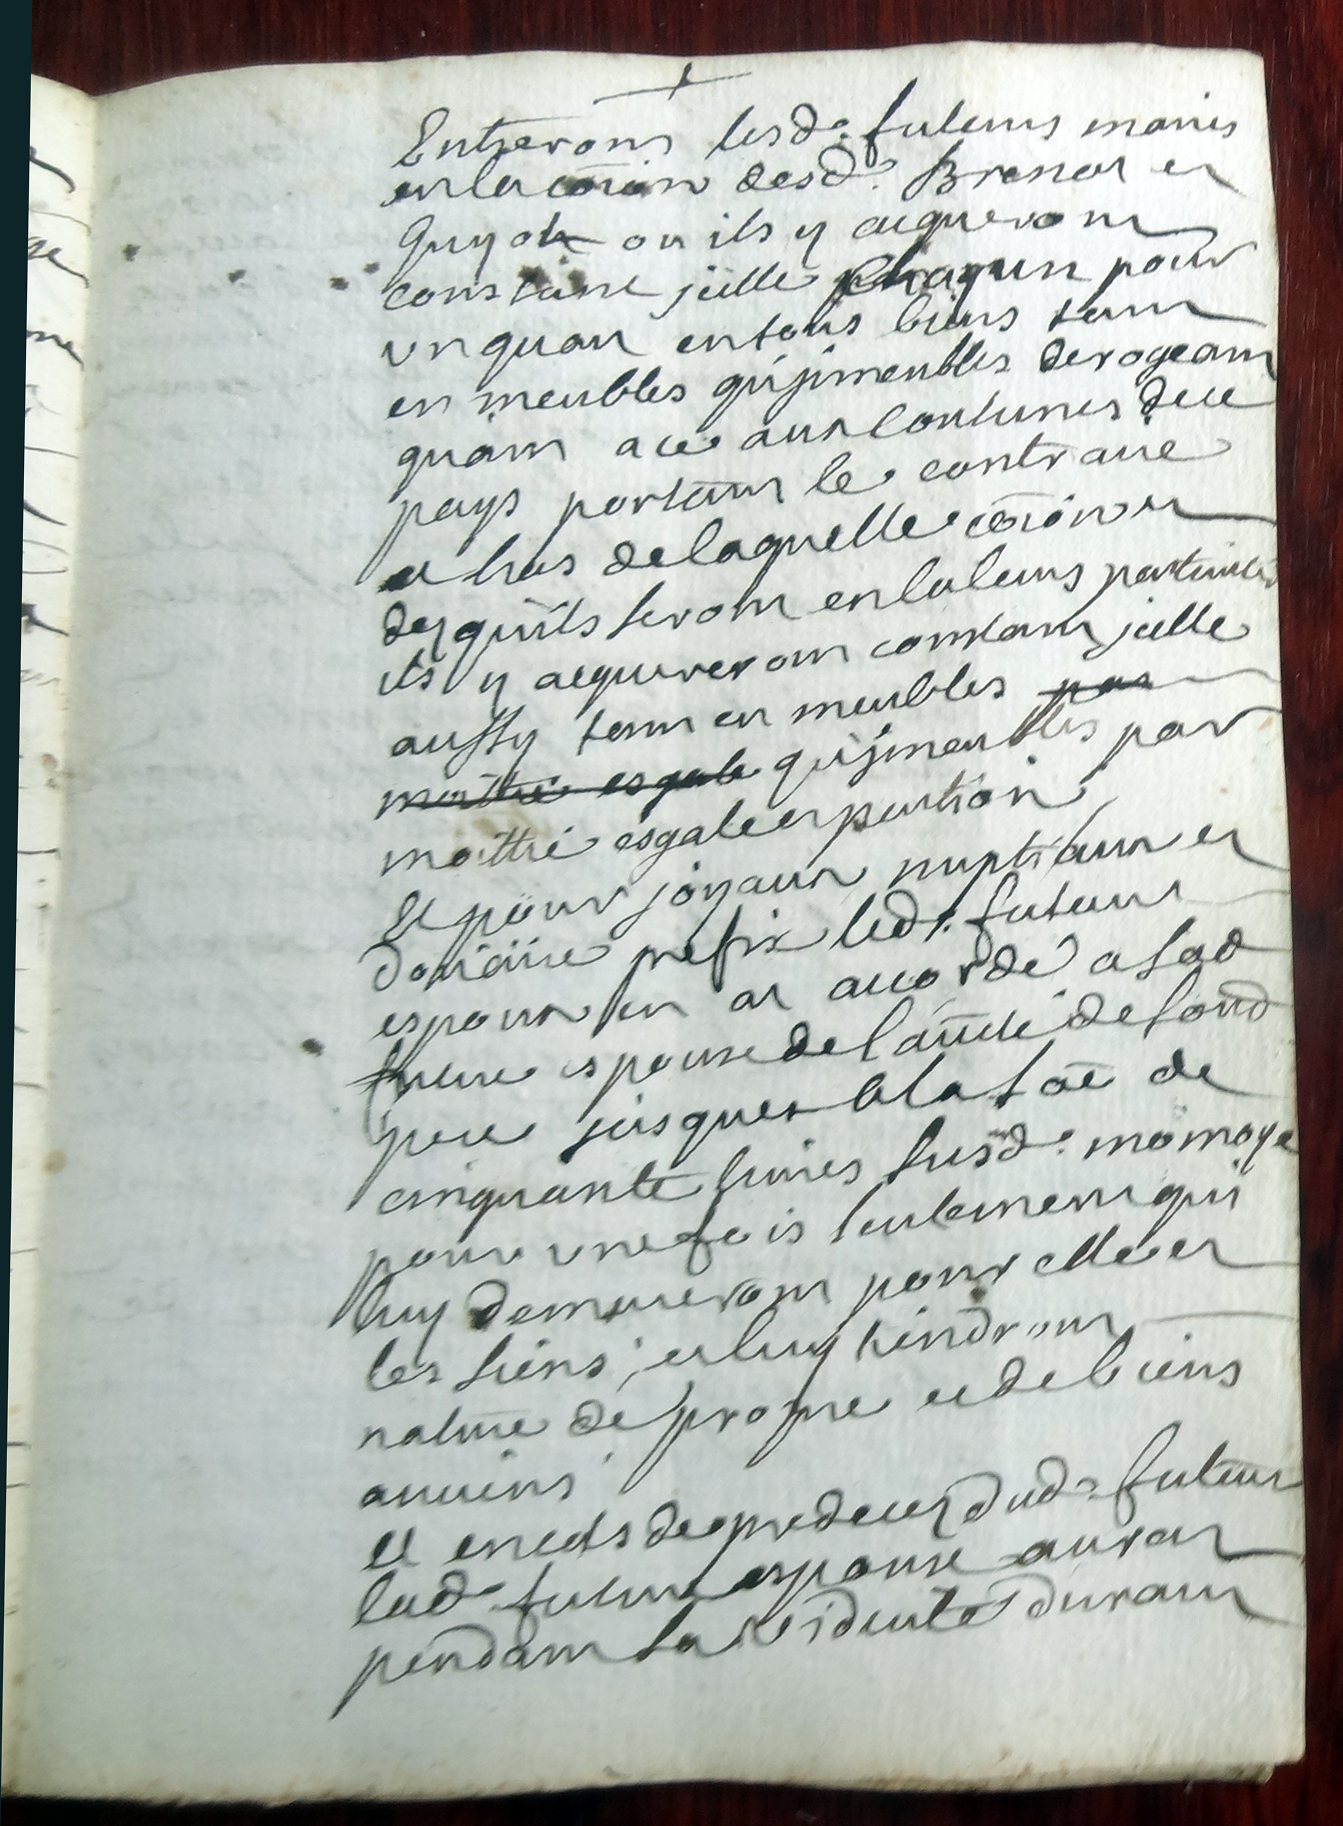 Entreronts lesd. futturs mariés
en la coïon desd. Brenot et
Guyot ou ils y acqueront
constant jcelle chaqun pour
un quart en tous biens tant
en meubles qu'jmeubles derogeant
quant a ce aux coutumes de ce
pays portant le contraire
et hors de laquelle coïon et
dez qu'ils seront en la leurs particuliere
ils y acqureront constant jcelle
aussy tant en meubles par
moittié esgale qu'jmeubles par
moittié esgale et portion
Et pour joyaux nuptiaux et
doüaire prefix led. futeur
espoux en at accordé a lad
future espouse de l'autté de sond
pere jusques a la soë de
cinquante livres susd. monoye
pour une fois seulement qui
luy demeureront pour elle et
les siens et luy tiendront
nature de propre et de biens
anciens
Et en cas de predecez dud. futeur
lad. future espouse aurat
pendant sa viduité durant